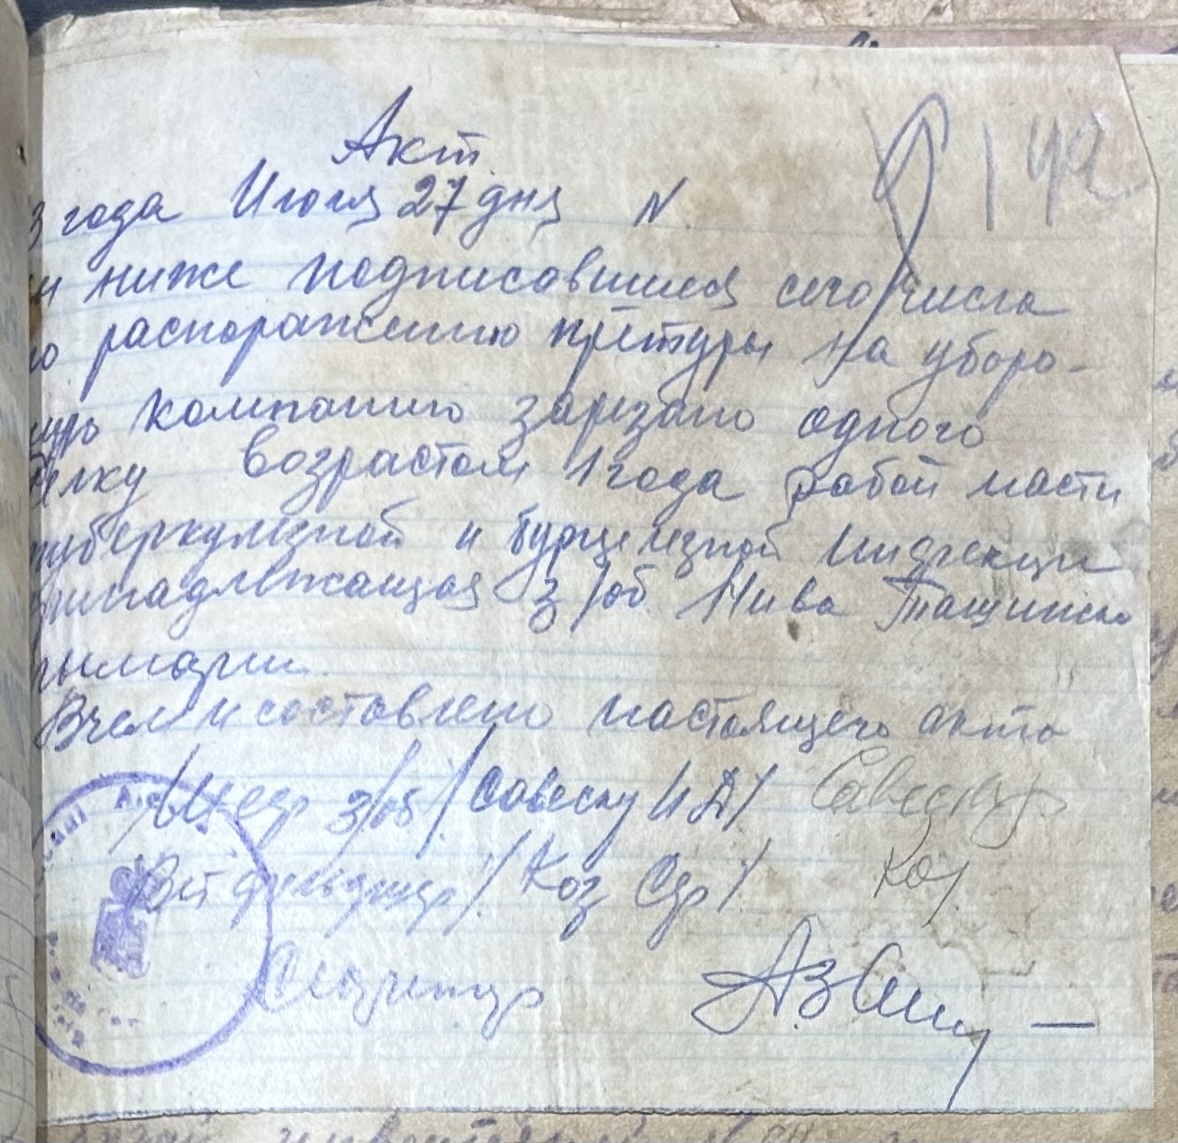 Акт
142
3 года Июля 27 дня N
и ниже подписавшиеся сего числа
о распоражению претуры На уборо-
ную компанию зарезано одного
тёлку возрастом 1 года рабой масти
туберкулезной и бурцилезной Инфекции
принадлежащая з/об Нива
Вчем и составлено настоящего акта
з/об / Савеску И Д/
Вет фельдшер / Коз /
Коз